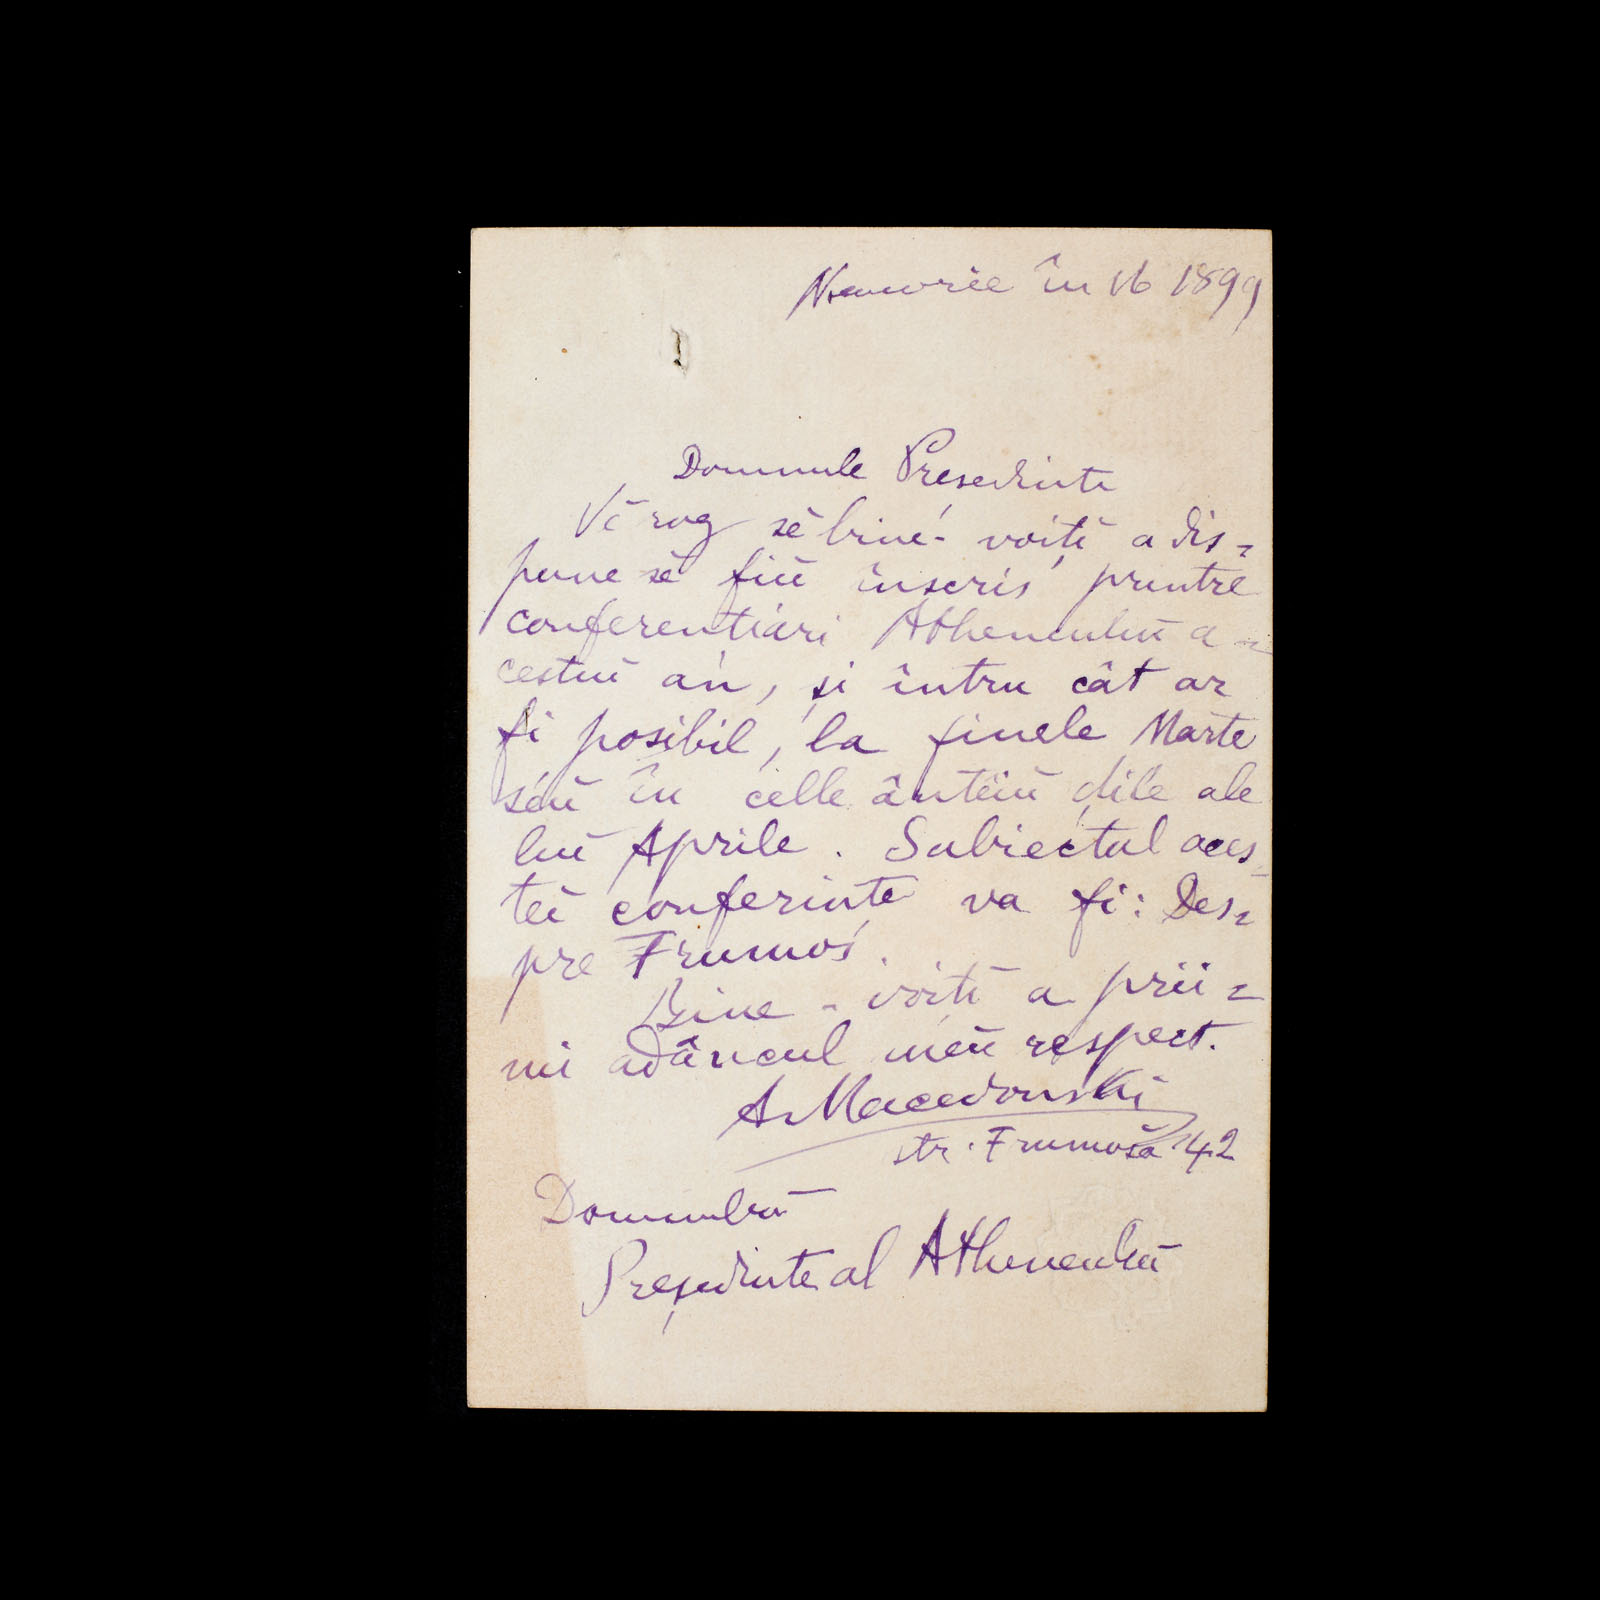 Noemvrie în 16 1899
Domnule Președinte
Vĕ rog sĕ bine-voiți a dis=
pune sĕ fiŭ înscris printre
conferențiari Atheneuluĭ a=
cestuĭ an, și întru cât ar
fi posibil, la finele Marte
séŭ în celle ânteiŭ ḑile ale
luĭ Aprile. Subiectul aces=
teĭ conferințe va fi: Des=
pre Frumos.
Bine-voiți a prii=
mi adâncul meŭ respect.
A. Macedonski
str. Frumósă 42
Domnuluĭ
Președinte al Atheneuluĭ